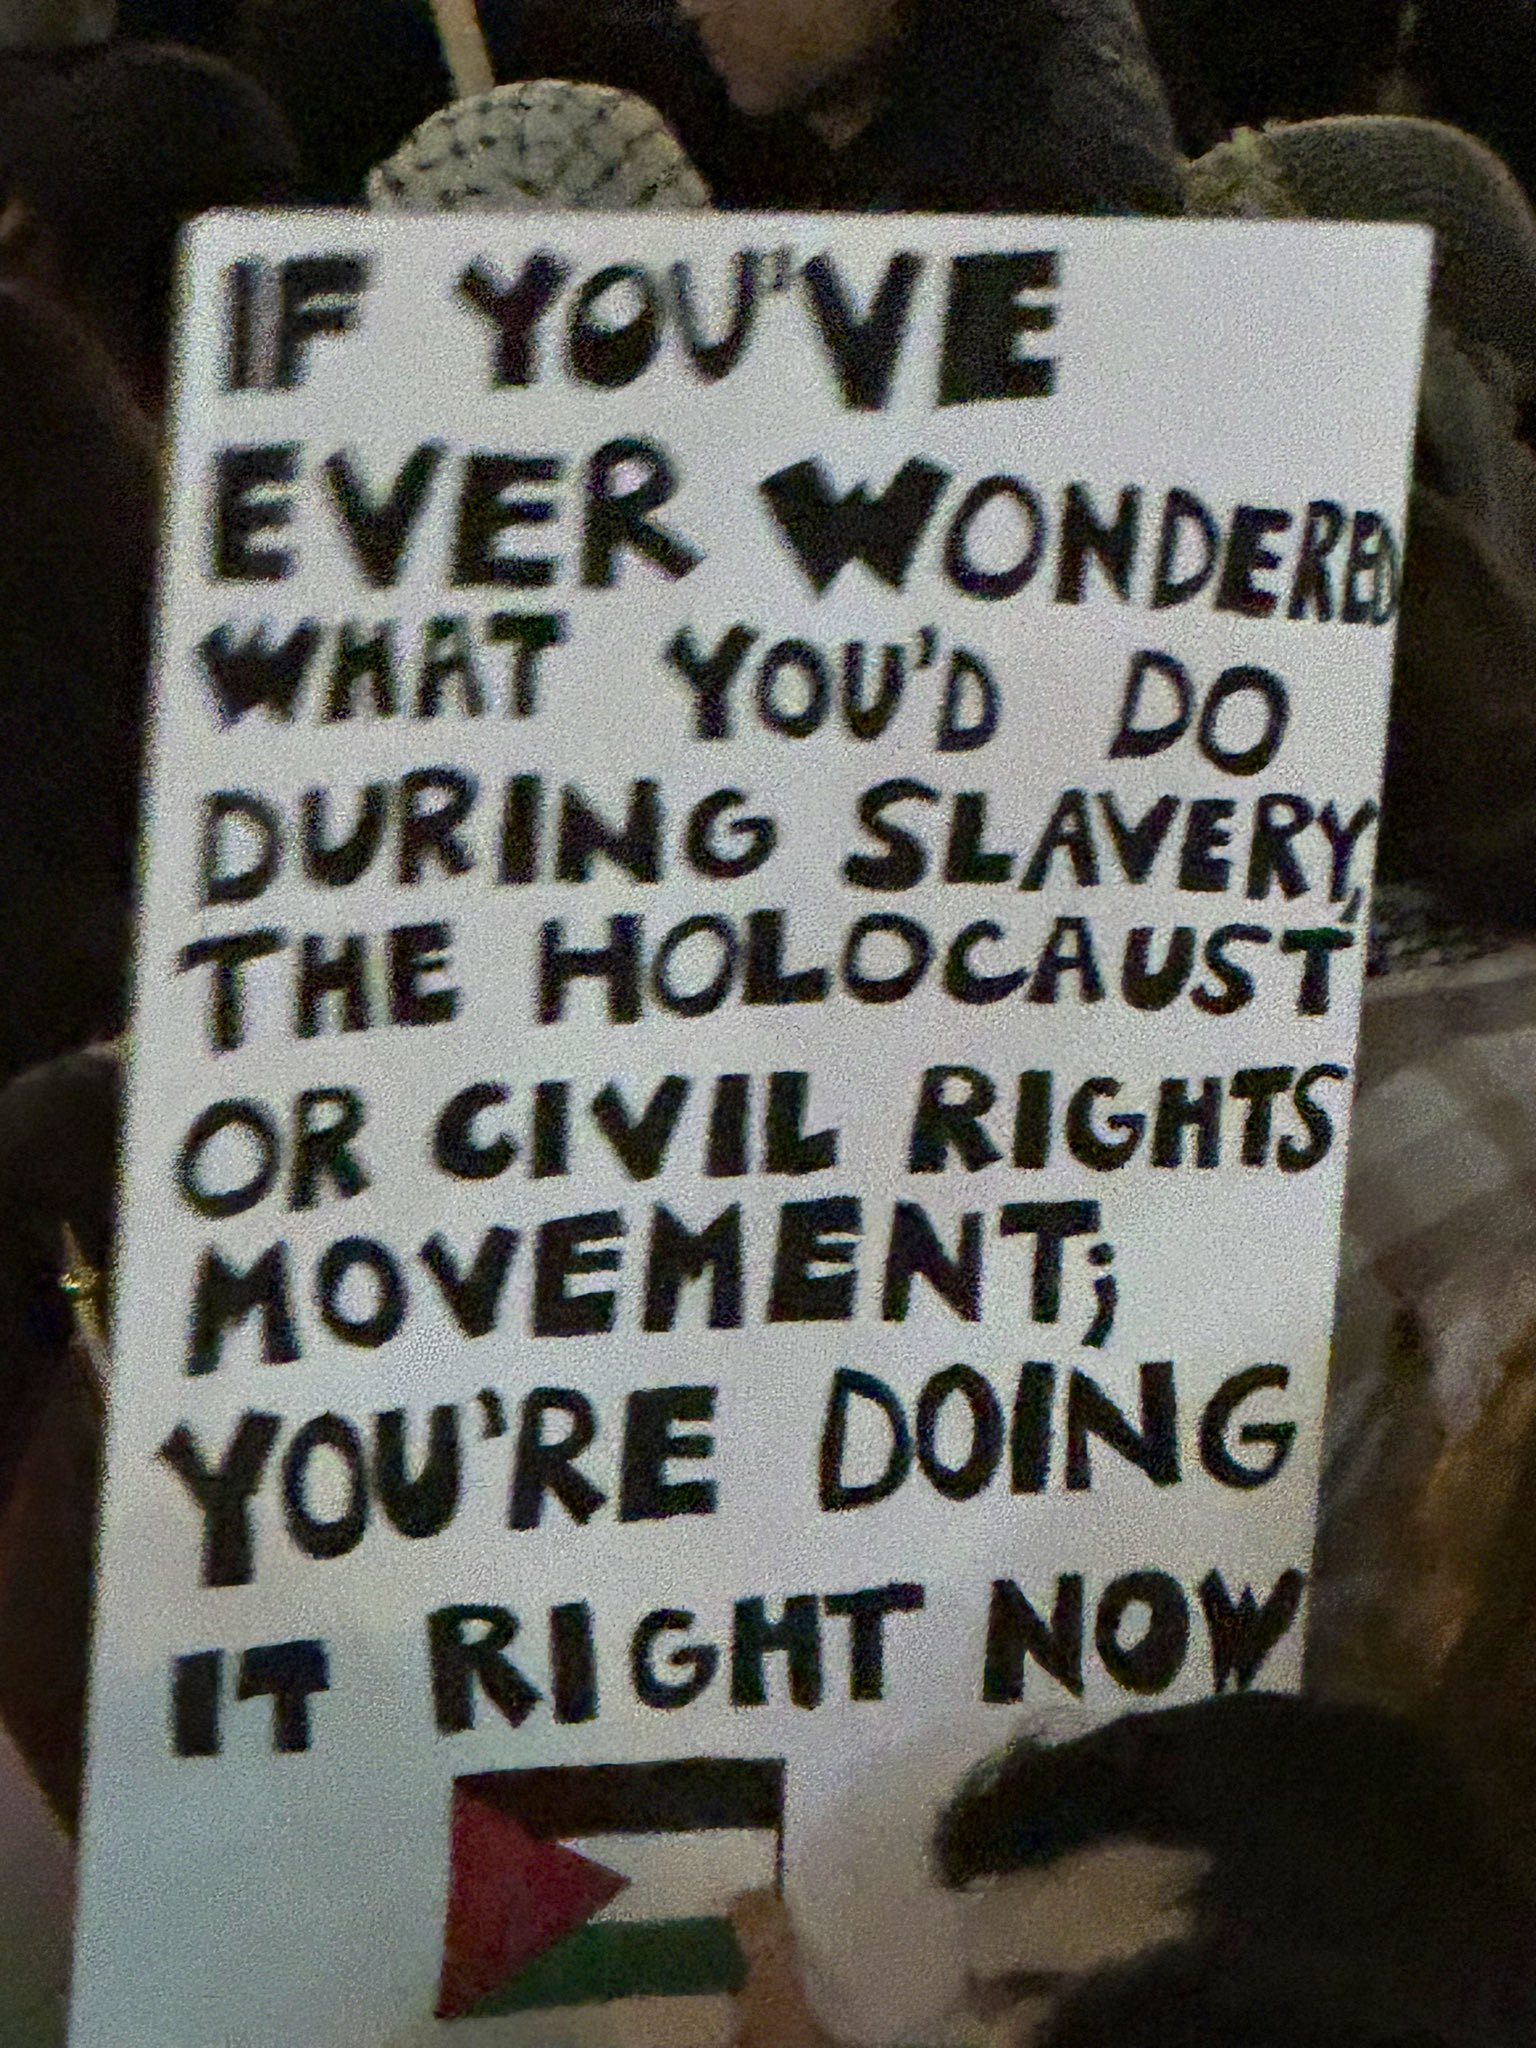 IF YOU'VE
EVER WONDERED
WHAT YOU'D DO
DURING SLAVERY,
THE HOLOCAUST
OR CIVIL RIGHTS
MOVEMENT;
YOU'RE DOING
IT RIGHT NOW